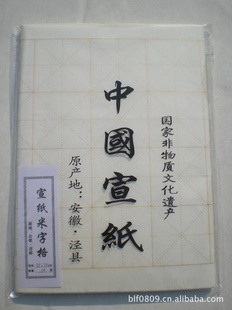 国家非物质文化遗产
中國宣紙
原产地：安徽·泾县
宣纸米字格
blf0809.1688.com